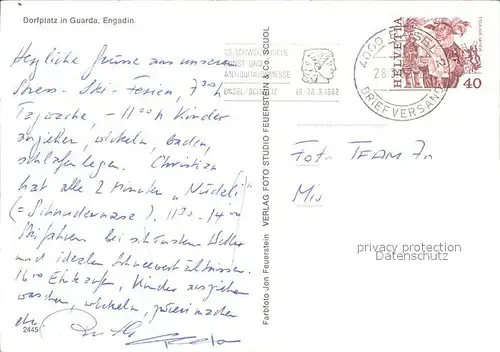 Dorfplatz in Guarda, Engadin
Herzliche Grüsse aus unseren
Stress-Ski-Ferien, 7³⁰h
Tagwache, - 11⁰⁰h Kinder
anziehen, wickeln, baden,
schlafen legen. Christian
hat alle 2 Minuten "Nüdeli"
(= Schnudernase). 11³⁰-14⁰⁰
Skifahren bei schönstem Wetter
und idealen Schneeverhältnissen.
16⁰⁰ Einkaufen, Kinder ausziehen
waschen, wickeln,
etc.
2445
Farbfoto Jon Feuerstein VERLAG FOTO STUDIO FEUERSTEIN & Co. SCUOL
23. SCHWEIZERISCHE
KUNST- UND
ANTIQUITÄTENMESSE
BASEL
1982
4000 BASEL 2
28.
BRIEFVERSAND
HELVETIA
40
Foto TEAM
privacy protection
Datenschutz